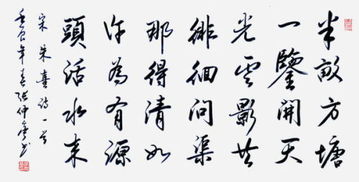 半畝方塘
一鑒開天
光雲影共
徘徊問渠
那得清如
許為有源
頭活水來
宋朱熹詩一首
壬辰年 張仲 書